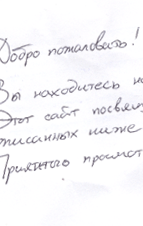 Добро пожаловать!
Вы находитесь на
Этот сайт посвящ
описанных ниже
Приятного просмот